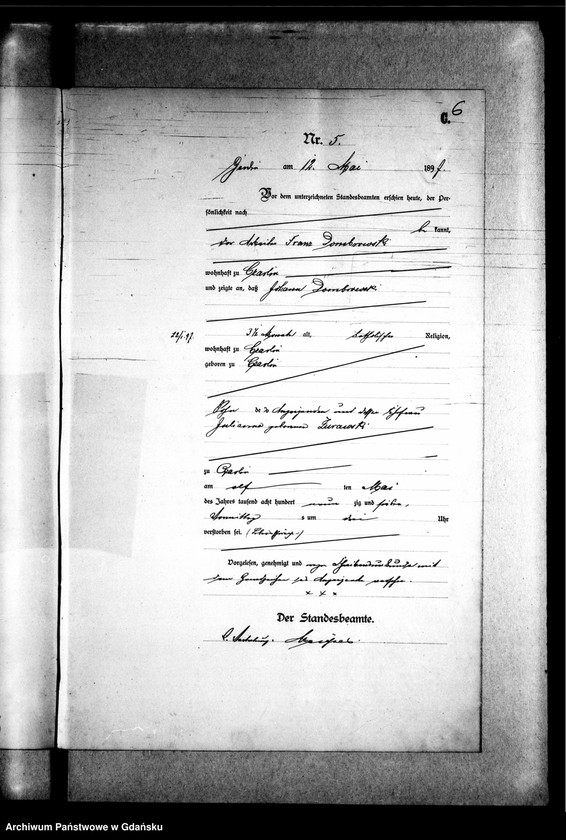 C. 6
Nr. 5.
am 12. Mai 1897.
Vor dem unterzeichneten Standesbeamten erschien heute, der Per-
sönlichkeit nach
be kannt,
der Arbeiter Franz Dombrowski
wohnhaft zu Czarlin
und zeigte an, daß Johann Dombrowski
3½ Monate alt, katholischer Religion,
wohnhaft zu Czarlin
geboren zu Czarlin
Sohn des Anzeigenden und dessen Ehefrau
Julianna geborenen Zurawski
zu Czarlin
am elf ten Mai
des Jahres tausend acht hundert neun zig und sieben,
Vormittags um drei Uhr
verstorben sei.
Vorgelesen, genehmigt und wegen Schreibensunkunde mit
dem Handzeichen des Anzeigenden versehen.
× × ×
Der Standesbeamte.
Archiwum Państwowe w Gdańsku